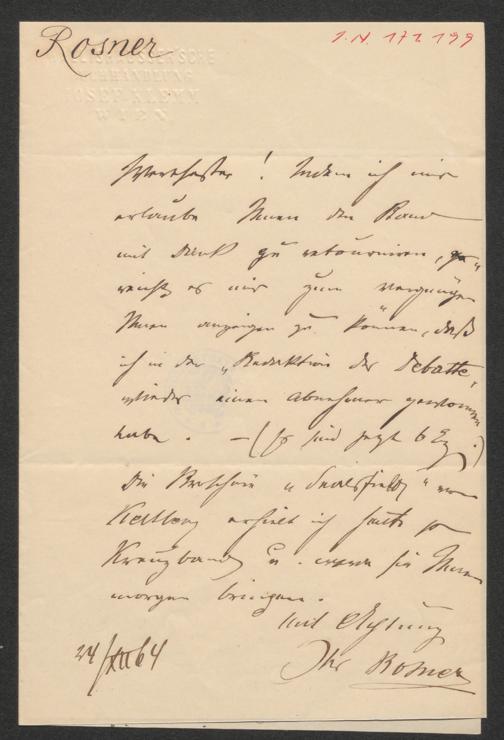 Rosner
I. N. 171.199
BUCHHANDLUNG
JOSEF KLEMM
WIEN
Werthester! Indem ich mir
erlaube Ihnen den Band
mit Dank zu retourniren, ge„
reicht es mir zum Vergnügen
Ihnen anzeigen zu können, daß
ich in der „Redaktion der Debatte„
wieder einen Abnehmer gewonnen
habe. – (Es sind jetzt 6 Ex.)
Die Broschüre „Sealsfield" von
Kertbeny erhielt ich heute per
Kreuzband u. werde sie Ihnen
morgen bringen.
Mit Achtung
Ihr Rosner
24/XII 64